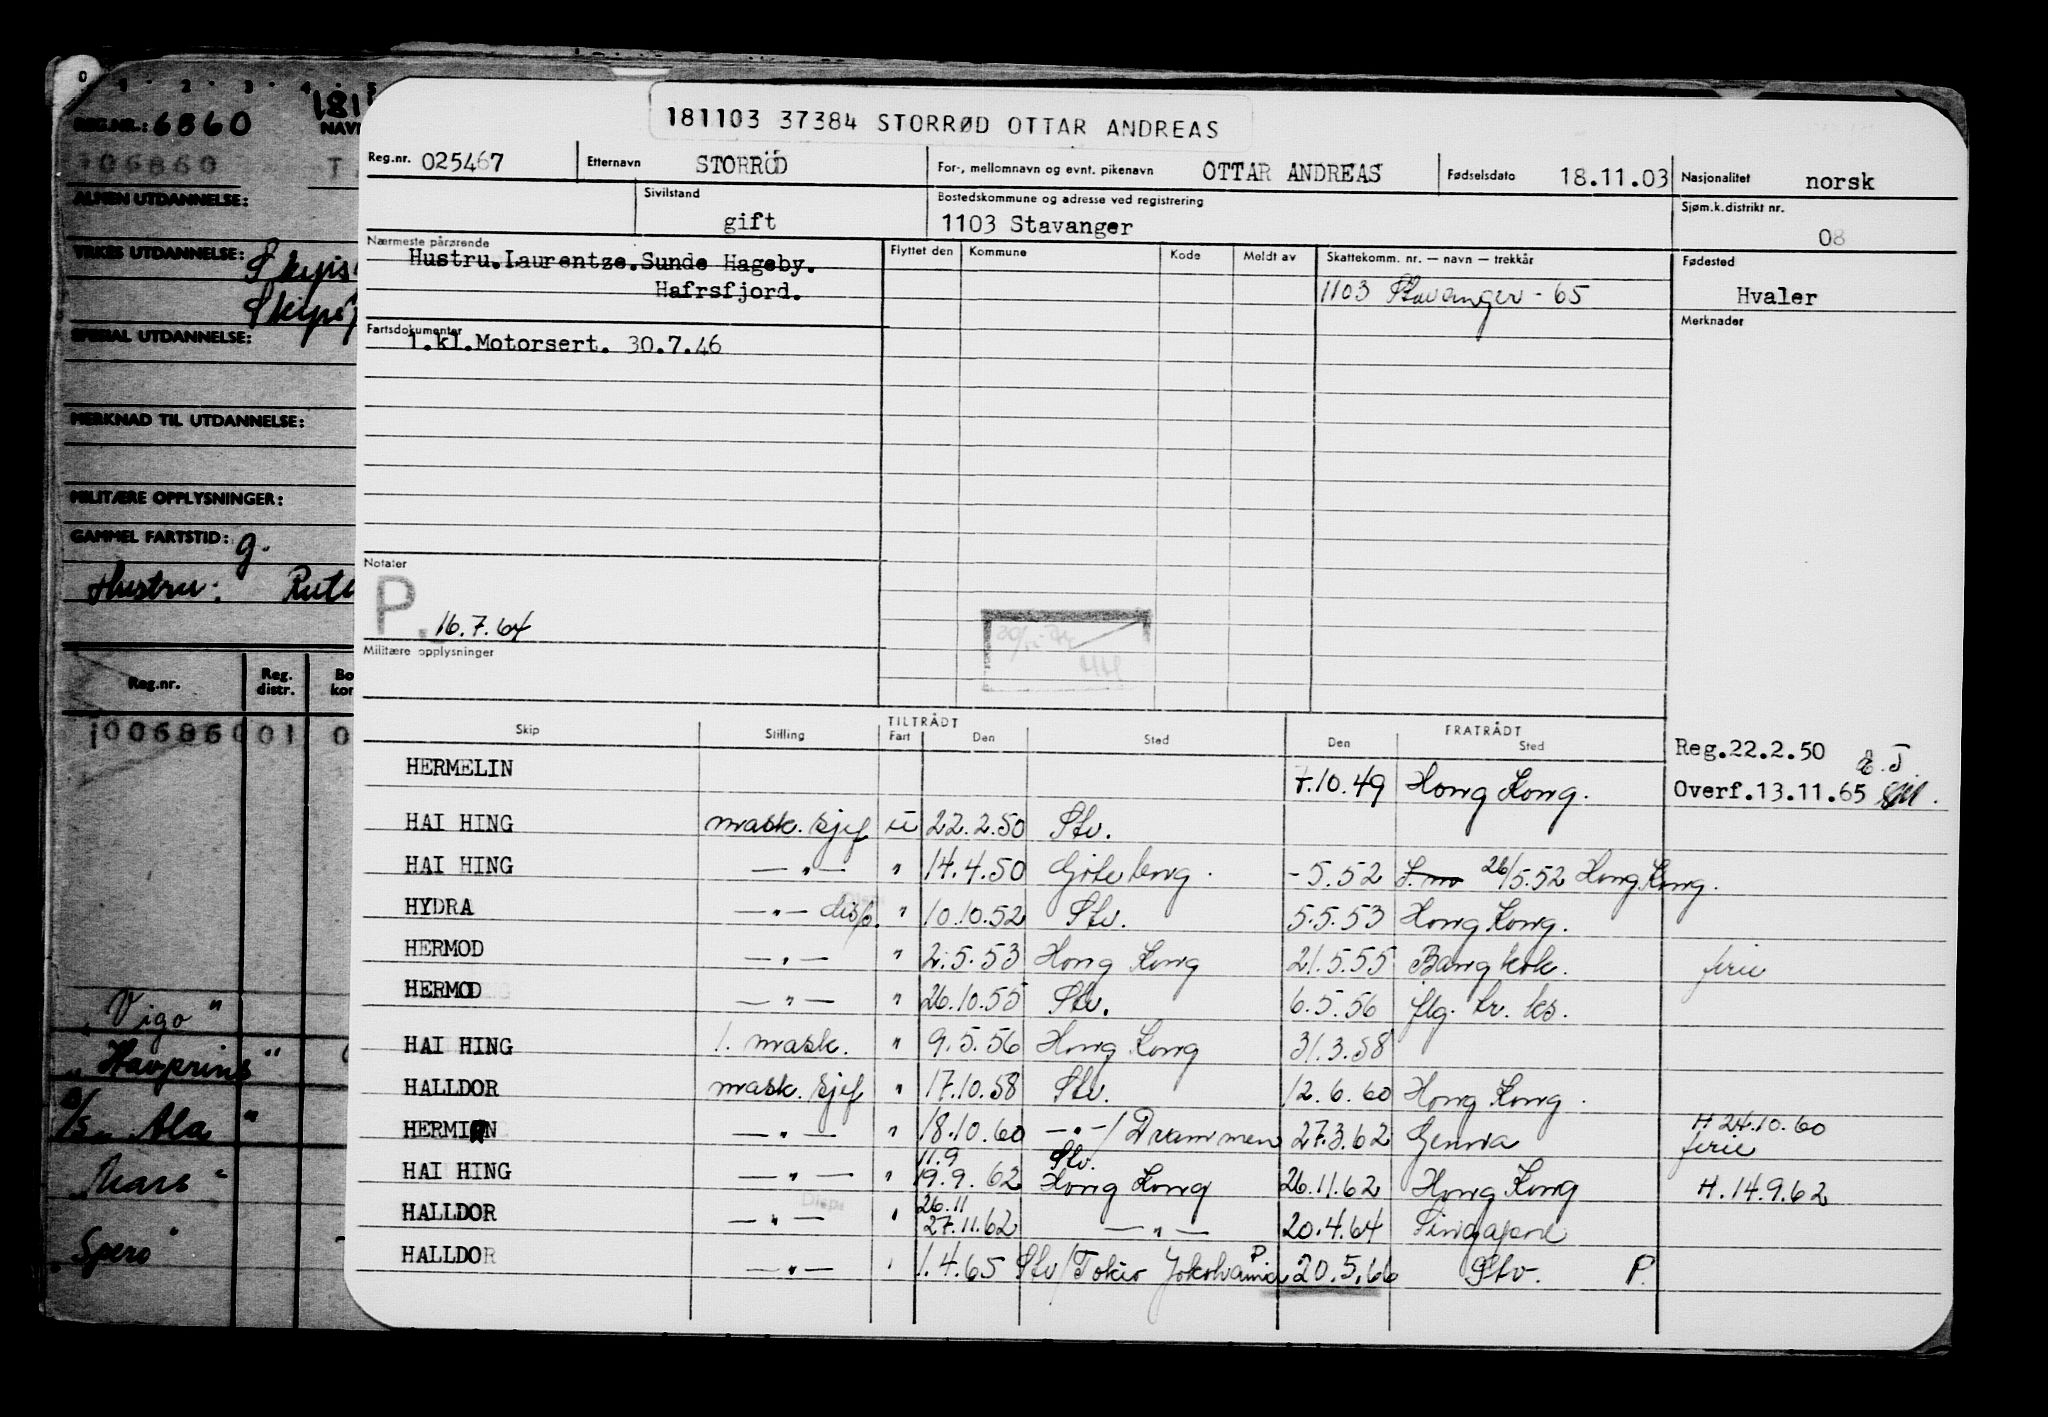 0 1 2 3 4 5
REG.NR.: 6860
NAVN
006860
ALMEN UTDANNELSE:
YRKES UTDANNELSE:
SPESIAL UTDANNELSE:
MERKNAD TIL UTDANNELSE:
MILITÆRE OPPLYSNINGER:
GAMMEL FARTSTID: g.
Hustru:
Reg.nr. Reg. distr.
006860 01 0
"Vigo"
"Havprins"
"Ala"
"Mars"
"Spero"
181103 37384 STORRØD OTTAR ANDREAS
Reg.nr. 025467 Etternavn STORRÖD For-, mellomnavn og evnt. pikenavn OTTAR ANDREAS Fødselsdato 18.11.03 Nasjonalitet norsk
Sivilstand gift Bostedskommune og adresse ved registrering 1103 Stavanger Sjøm.k.distrikt nr. 08
Nærmeste pårørende Flyttet den Kommune Kode Meldt av Skattekomm. nr. — navn — trekkår Fødested
Hustru.Laurentze.Sunde Hageby.
Hafrsfjord. 1103 Stavanger - 65 Hvaler
Fartsdokumenter Merknader
1.kl.Motorsert. 30.7.46
Notater
P. 16.7.64
Militære opplysninger
TILTRÅDT FRATRÅDT
Skip Stilling Fart Den Sted Den Sted
Reg.22.2.50
HERMELIN 7.10.49 Hong Kong. Overf.13.11.65
HAI HING mask. sjef u 22.2.50 Stv.
HAI HING — " — " 14.4.50 Göteborg. -5.52 26/5.52 Hong Kong.
HYDRA — " — disp. " 10.10.52 Stv. 5.5.53 Hong Kong.
HERMOD — " — " 2.5.53 Hong Kong 21.5.55 Bangkok. ferie
HERMOD — " — " 26.10.55 Stv. 6.5.56 flg. br. ks.
HAI HING 1. mask. " 9.5.56 Hong Kong 31.3.58
HALLDOR mask. sjef " 17.10.58 Stv. 12.6.60 Hong Kong.
HERMION — " — " 18.10.60 — " —/Drammen 27.3.62 Genua H 24.10.60 ferie
HAI HING — " — " 11.9 19.9.62 Stv. Hong Kong 26.11.62 Hong Kong H. 14.9.62
HALLDOR — " — " 26.11 27.11.62 — " — 20.4.64 Singapore
HALLDOR — " — " 1.4.65 Stv/Tokio Yokohama P 20.5.66 Stv. P.